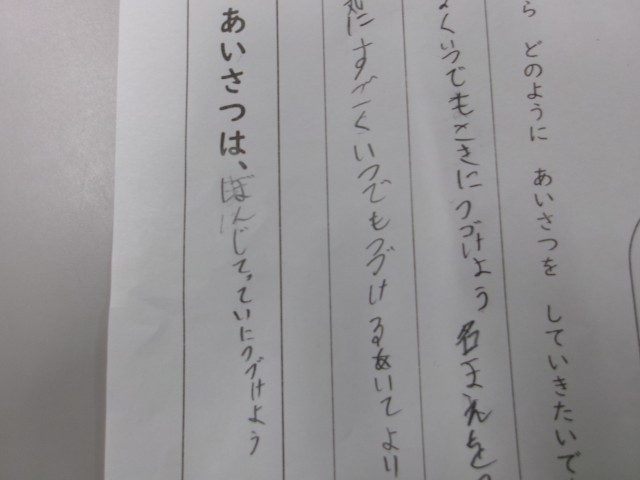 ら どのように あいさつを していきたいで
よくいつでもときにつづけよう 名まえを
気にすごくいつでもつづけるあいてより
あいさつは、ぼんじてっていにつづけよう